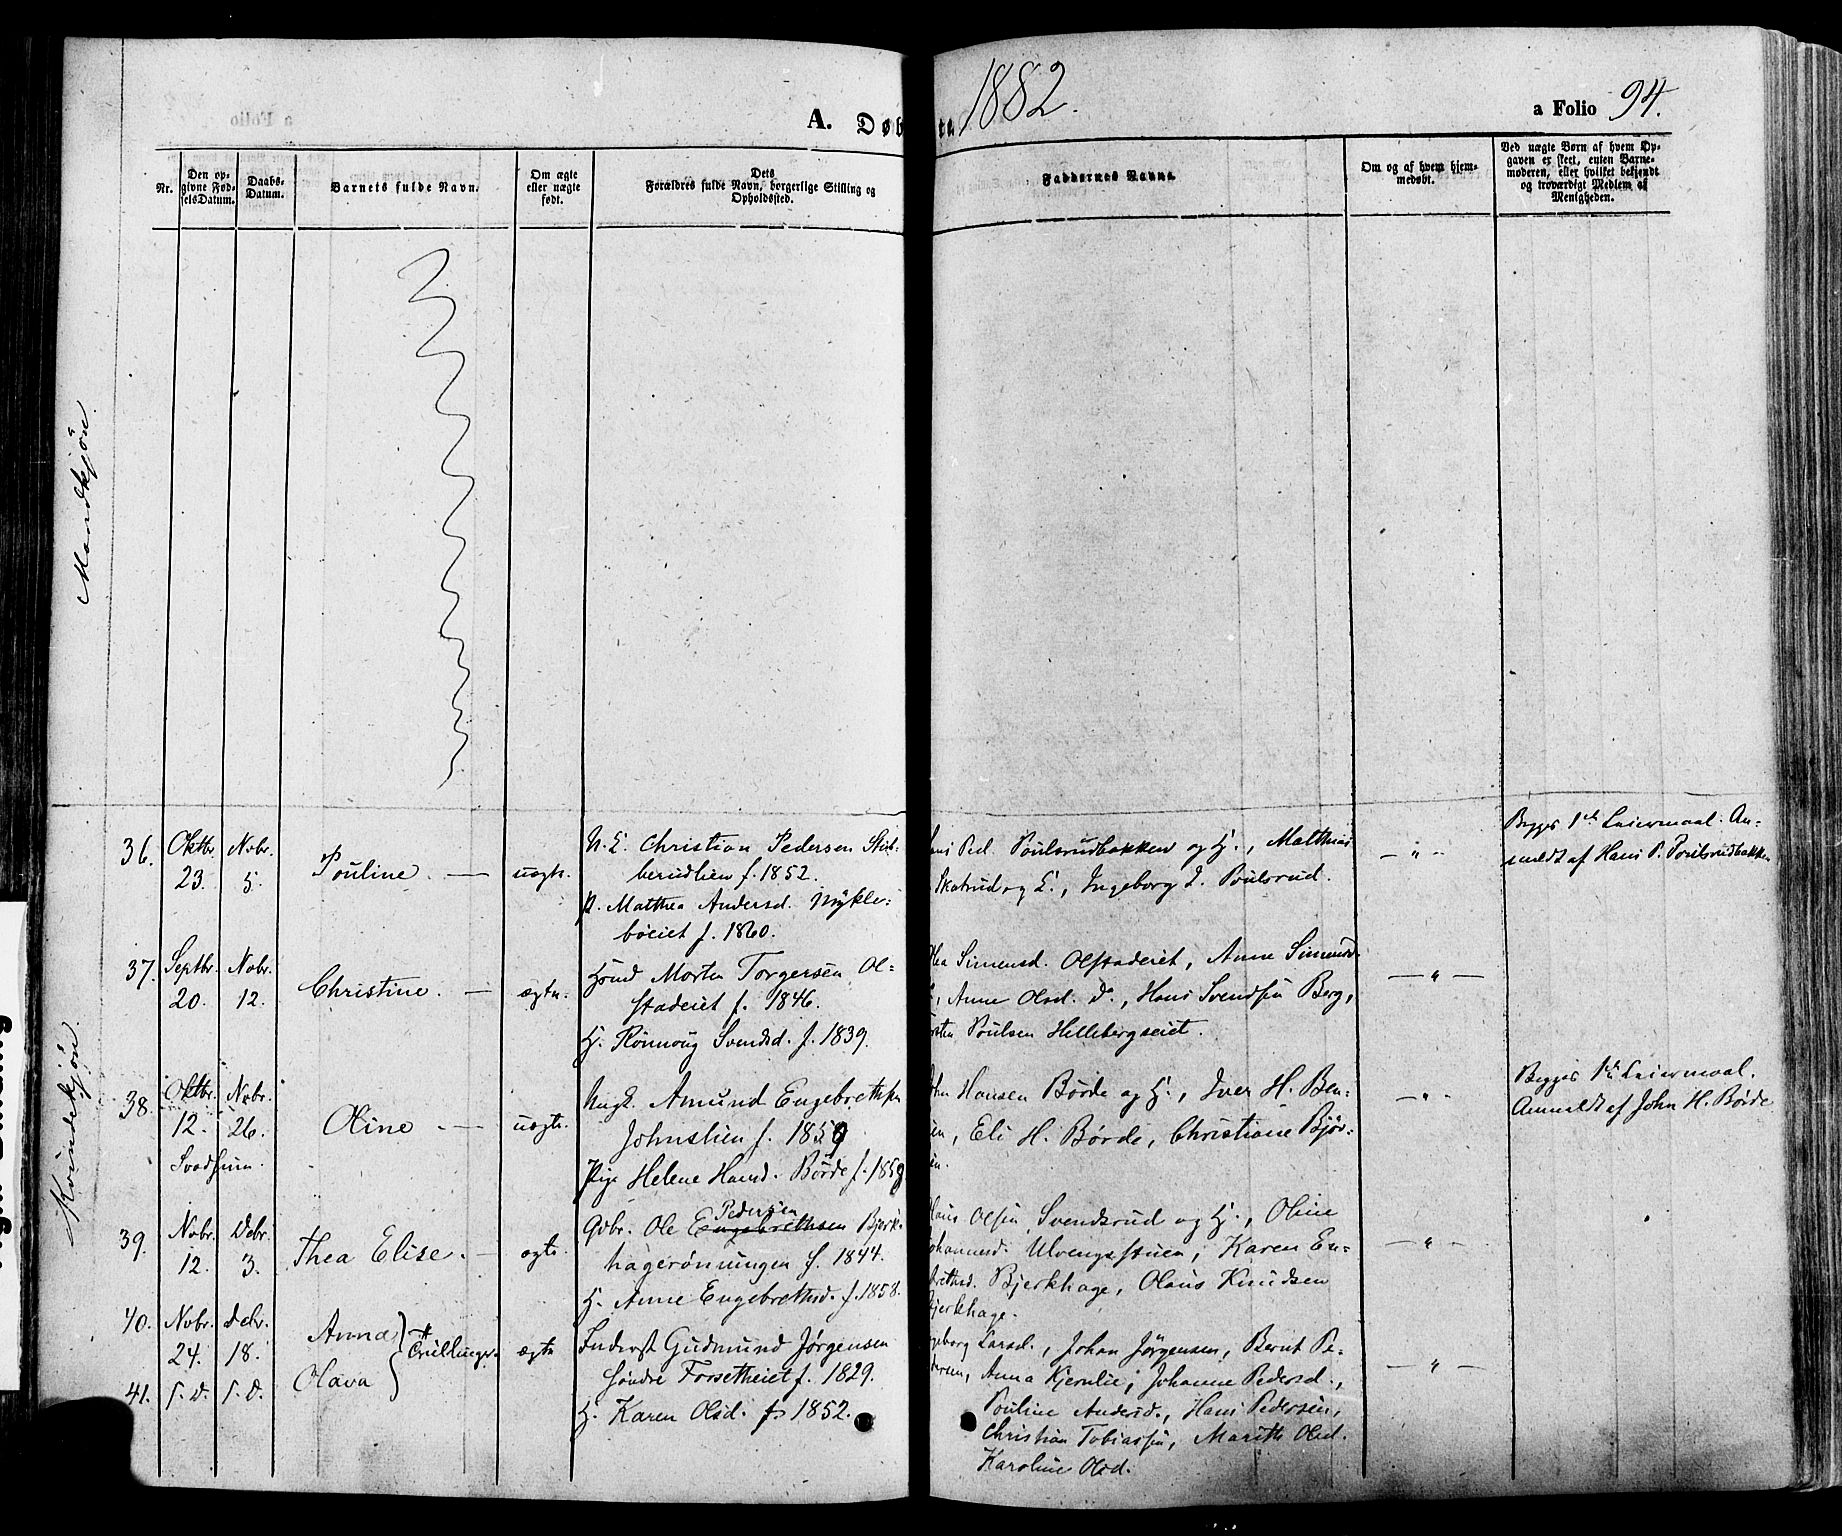 A. Døb
te 1882.
a Folio 94.
Nr.
Den op-
givne Fød-
selsDatum.
Daabs-
Datum.
Barnets fulde Navn.
Om ægte
eller uægte
født.
Dets
Forældres fulde Navn, borgerlige Stilling og
Opholdssted.
Faddernes Navne.
Om og af hvem hjem-
medøbt.
Ved uægte Børn af hvem Op-
gaven er skeet, enten Barne-
moderen, eller hvilket bekjendt
og troværdigt Medlem af
Menigheden.
Mandkjøn.
Kvindekjøn.
36.
Oktbr.
23.
Nvbr.
5.
Pouline. —
uægte.
U. E. Christian Pedersen
berudlien f. 1852.
P. Matthea Andersd. Mykle-
bøeiet f. 1860.
Ped. Poulsrudbakken og H., Matthias
Skatrud og E., Ingeborg I. Poulsrud.
— " —
Begges 1ste Leiermaal. An-
meldt af Hans P. Poulsrudbakken
37.
Septbr.
20.
Nvbr.
12.
Christine. —
ægte.
Hsmd Morten Torgersen Ol-
stadeiet f. 1846.
H. Rønnoug Svendsd. f. 1839.
Simensd. Olstadeiet, Anne Simensd.
, Anne Olsd. D., Hans Svendsen Berg,
Poulsen Hellebergseiet.
— " —
38.
Oktbr.
12.
Svadsum.
Nvbr.
26.
Oline — —
uægte.
Ungk. Amund Engebrethsen
Johnslien f. 1859
Pige Helene Hansd. Børde f. 1858
Hansen Børde og H., Iver H. Ben-
en, Eli H. Børde, Christiane Bjør-
en.
— " —
Begges 1ste Leiermaal.
Anmeldt af John H. Børde
39.
Nvbr.
12.
Debr.
3.
Thea Elise. —
ægte.
Pedersen
Gdbr. Ole Engebrethsen Bjerk-
hagerønningen f. 1844.
H. Anne Engebrethsd. f. 1858.
Olsen Svendsrud og H., Oline
Johannesd. Ulvengsstuen, Karen En-
brethsd. Bjerkhage, Olaus Knudsen
Bjerkhage.
— " —
40.
Nvbr.
24.
Debr.
18.
Anna
Tvillinger
ægte
Inderst Gudmund Jørgensen
Søndre Forsetheiet f. 1829.
H. Karen Olsd. f. 1852.
41.
s. D.
s. D.
Olava
Larsd., Johan Jørgensen, Bernt Pe-
dersen, Anna Kjernlie, Johanne Pedersd.,
Pouline Andersd., Hans Pedersen,
Christian Tobiassen, Marithe Olsd.
Karoline Olsd.
— " —